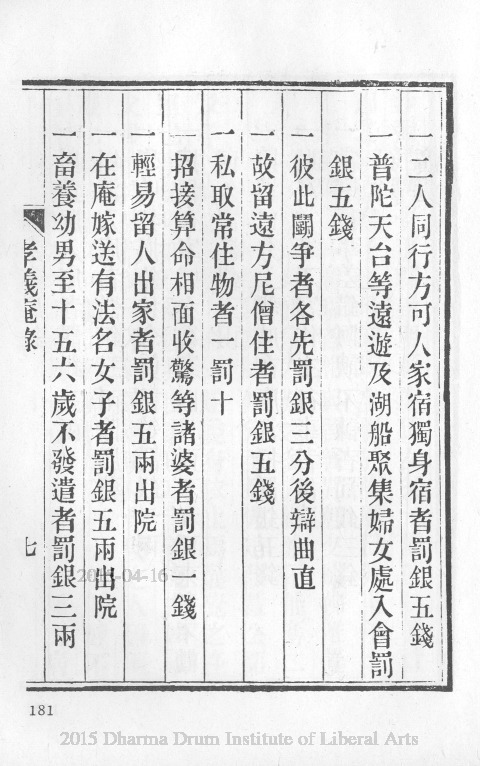 一二人同行方可人家宿獨身宿者罰銀五錢
一普陀天台等遠遊及湖船聚集婦女處入會罰
銀五錢
一彼此鬭爭者各先罰銀三分後辯曲直
一故留遠方尼僧住者罰銀五錢
一私取常住物者一罰十
一招接算命相面收驚等諸婆者罰銀一錢
一輕易留人出家者罰銀五兩出院
一在庵嫁送有法名女子者罰銀五兩出院
一畜養幼男至十五六歲不發遣者罰銀三兩
孝義庵錄
七
2021-04-16
181
2015 Dharma Drum Institute of Liberal Arts